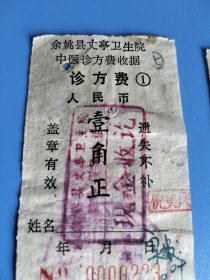 余姚县丈亭卫生院
中医诊方费收据
诊方费①
人民币
壹角正
盖章有效
遗失不补
现金收讫
姓名
年 月
No 0000223